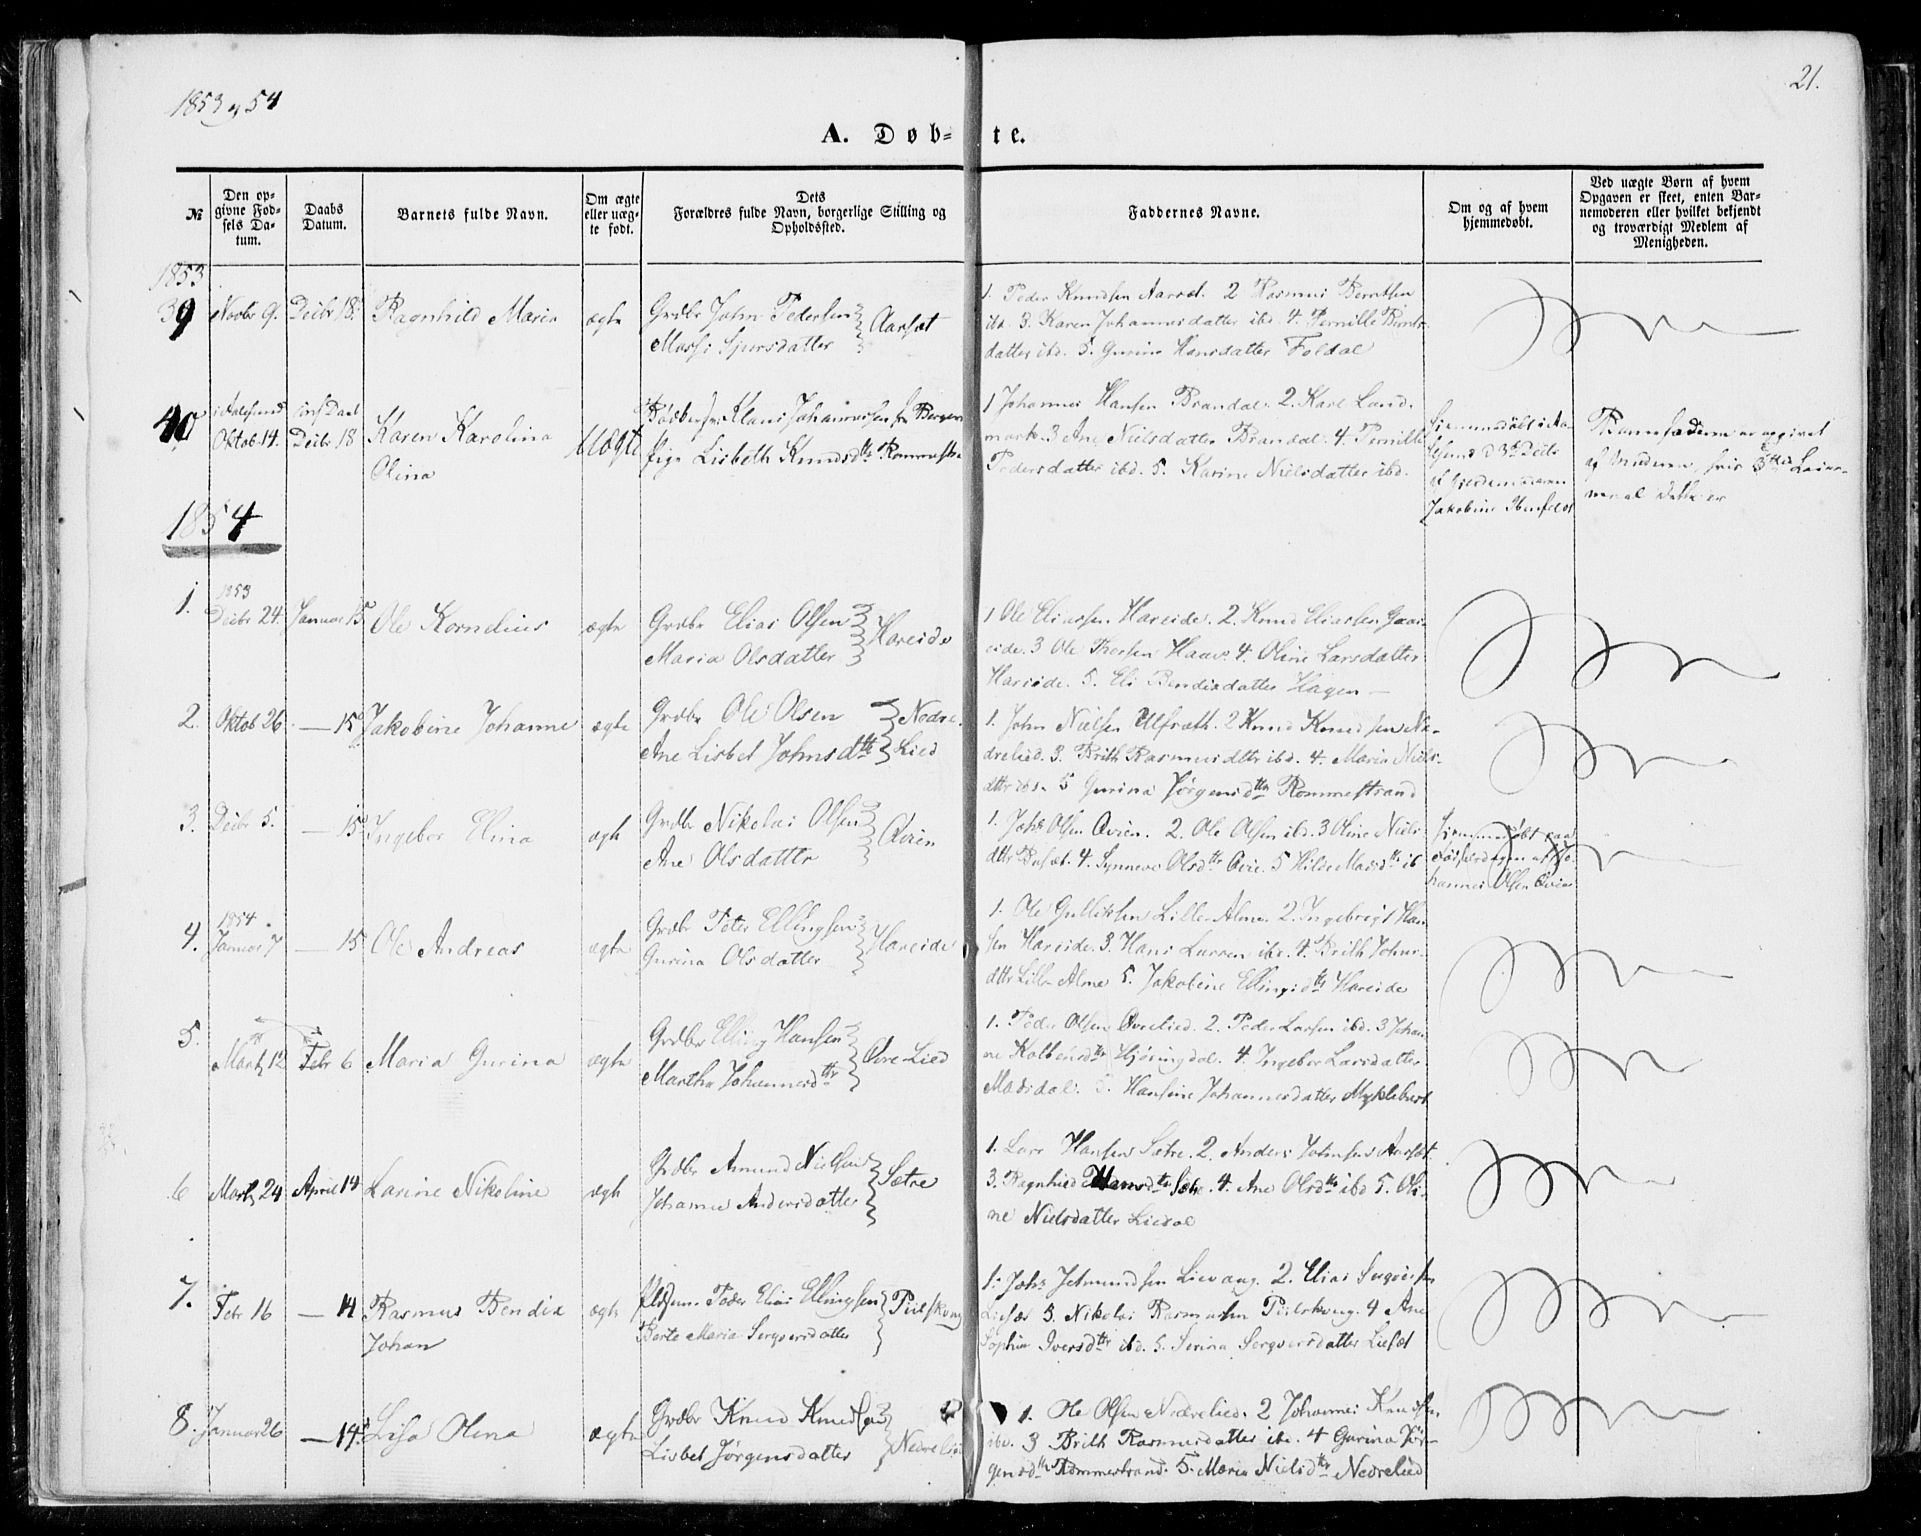 1853 & 54
21.
A. Døb- te.
№
Den opgivne Fødsels Datum.
Daabs Datum.
Barnets fulde Navn.
Om ægte eller uægte født.
Dets Forældres fulde Navn, borgerlige Stilling og Opholdssted.
Faddernes Navne.
Om og af hvem hjemmedøbt.
Ved uægte Børn af hvem Opgaven er skeet, enten Barnemoderen eller hvilket bekjendt og troværdigt Medlem af Menigheden.
1853
39 Novbr 9. Decbr 18. Ragnhild Maria ægte Grdbr John Pedersen
Sjursdatter Aarsæt
1. Peder Knudsen Aarsæt. 2 Rasmus Berntsen
ibd. 3. Karen Johannesdatter ibd. 4. Pernille Bernts-
datter ibd. 5. Gurine Hansdatter Foldal
40 i Aalesund Oktob. 14. Decbr 18 Karen Karolina
Olina
Uægte
Johannessen fra Bergen
Pige Lisbeth Knudsdtr Rommestra
1 Johannes Hansen Brandal. 2. Karl Land-
mark. 3 Ane Nielsdatter Brandal. 4. Pernille
Pedersdatter ibd. 5. Karine Nielsdatter ibd.
Hjemmedøbt i Aa-
lesund
af Gjordemoderen
Jakobine
Barnefaderen er opgivet
af Moderen, hvis 3die Leier-
maal dette er
1854
1. 1853 Decbr 24. Januar 15 Ole Kornelius ægte Grdbr Elias Olsen
Maria Olsdatter Hareide
1 Ole Eliassen Hareide. 2. Knud Eliassen
3 Ole 4. Oline Larsdatter
Hareide. 5. Eli Bendixdatter Hagen
2. Oktob 26 — 15 Jakobine Johanne ægte Grdbr Ole Olsen
Ane Lisbet Johnsdtr Nedre Lied
1. John Nielsen Ulfsæth. 2 Knud Knudsen Ne-
drelied. 3. Brith Rasmusdtr ibd. 4. Maria Niels-
dtr ibd. 5 Gurina Jørgensdtr Rommestrand
3. Decbr 5. — 15 Ingebor Elina ægte Grdbr Nikolai Olsen
Ane Olsdatter Qvien
1. Johs Olsen Qvien. 2. Ole Olsen ibd. 3 Oline Niels-
dtr 4. Synneve Olsdtr Qvie. 5 Hilde Madsdtr ib
Hjemmedøbt paa
Fødselsdagen af Jo-
hannes Olsen Qvien
4. 1854 Januar 7 — 15 Ole Andreas ægte Grdbr Peter Ellingsen
Gurina Olsdatter Hareide
1. Ole Gulliksen Lille-Alme. 2. Ingebrigt Han-
sen Hareide. 3. Hans Larsen ibd. 4. Brith Johns-
dtr Lille-Alme 5. Jakobine Ellingsdtr Hareide
5. Marts 12 Febr 6 Maria Gurina ægte Grdbr Elling Hansen
Martha Johannesdtr Øvre-Lied
1. Peder Olsen Øvrelied. 2. Peder Larsen ibd. 3 Johan-
ne Kolbensdtr Hjøringdal. 4. Ingebor Larsdatter
5. Hansine Johannesdatter Myklebust
6 Marts 24 April 14 Larine Nikoline ægte Grdbr Amund Nielsen
Johanne Andersdatter Sætre
1. Lars Hansen Sætre. 2. Anders Johnsen Aarsæt.
3. Ragnhild Hansdtr Sætre. 4. Ane Olsdtr ibd 5. Oli-
ne Nielsdatter Liedal
7. Febr 16 — 14 Rasmus Bendix
Johan
ægte Peder Elias Ellingsen
Berte Maria Sergversdatter Pulskoug
1. Johs Jetmundsen 2. Elias
3. Nikolai Rasmussen 4 Ane
Sophia Iversdtr ibd. 5. Serina Sergversdatter
8. Januar 26 — 14 Lisa Olena ægte Grdbr Knud Knudsen
Lisbet Jørgensdatter Nedrelied
1. Ole Olsen Nedrelied. 2 Johannes Knudsen
ibd. 3 Brith Rasmusdatter ibd. 4 Gurina Jør-
gensdtr Rommestrand. 5. Maria Nielsdtr Nedrelied